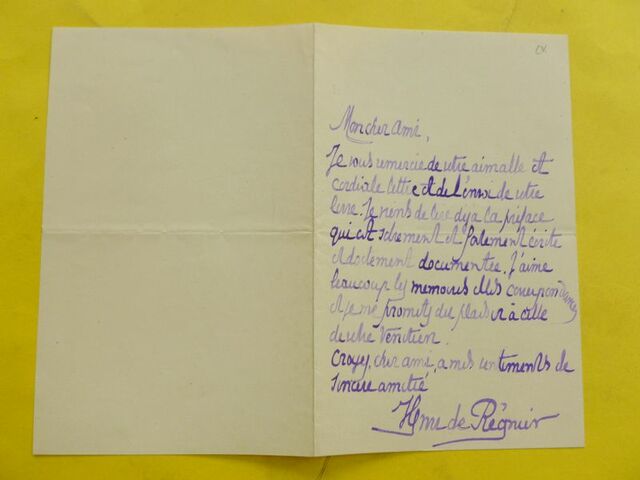 Mon cher ami,
Je vous remercie de votre aimable et
cordiale lettre et de l'envoi de votre
livre. Je viens de lire déjà la préface
qui est sûrement et joliment écrite
et doctement documentée. J'aime
beaucoup les mémoires et les correspondances
et je me promets du plaisir à celle
de votre Vénitien.
Croyez, cher ami, à mes sentiments de
sincère amitié
Henri de Régnier